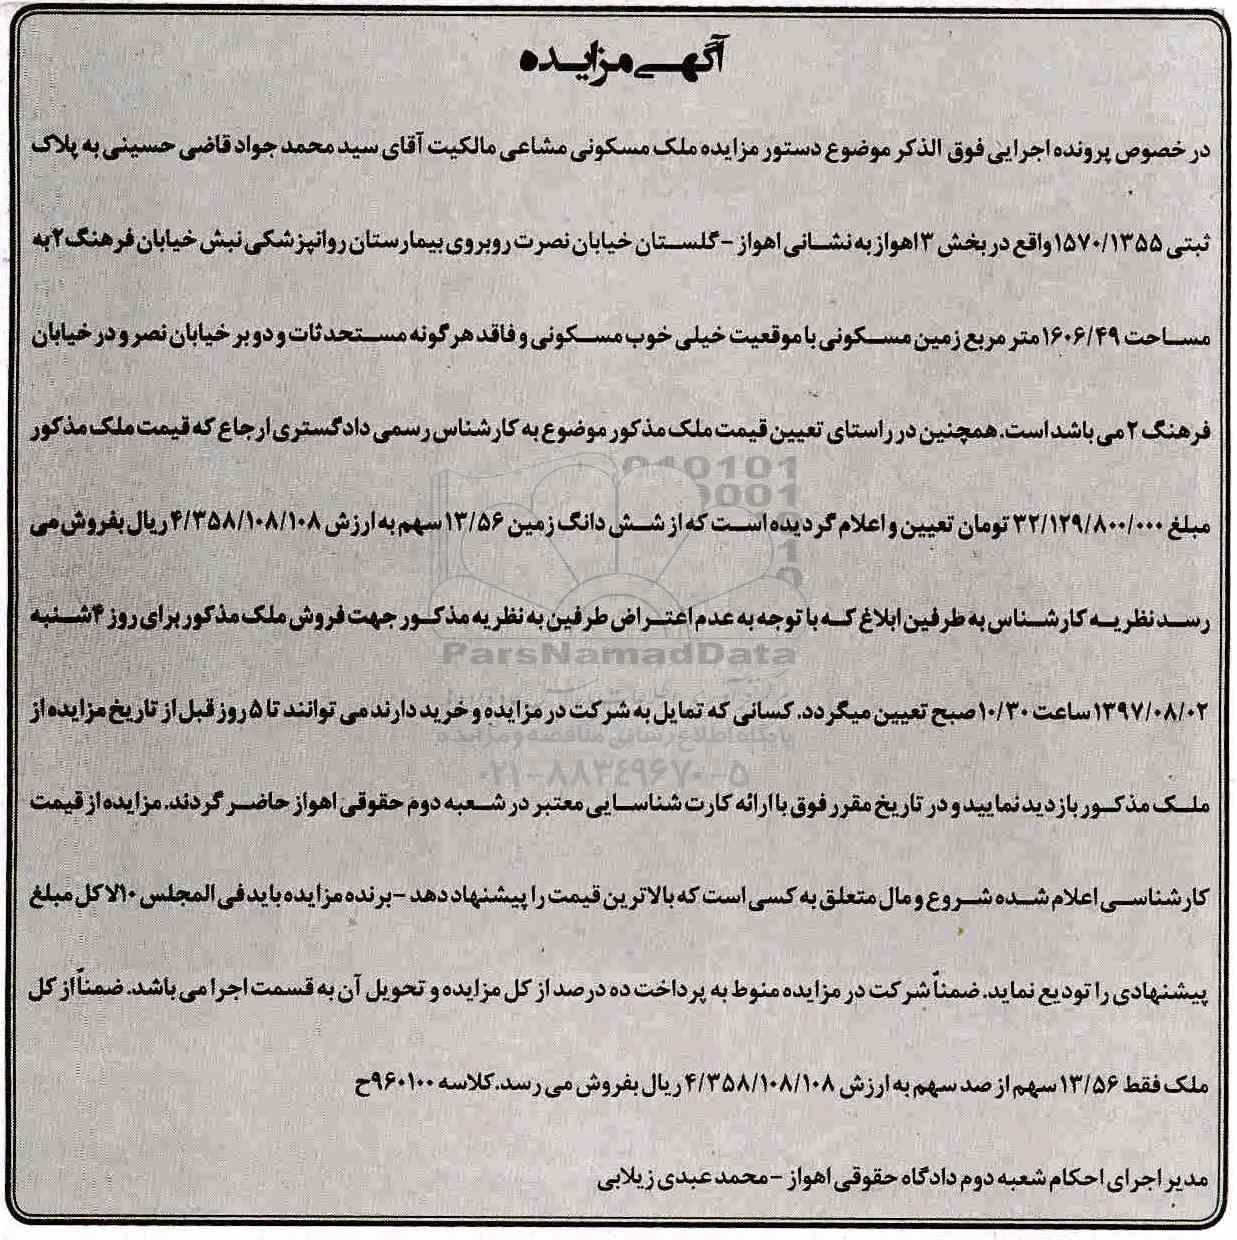 آگهی مزایده
در خصوص پرونده اجرایی فوق الذکر موضوع دستور مزایده ملک مسکونی مشاعی مالکیت آقای سید محمد جواد قاضی حسینی به پلاک
ثبتی ۱۵۷۰/۱۳۵۵ واقع در بخش ۳ اهواز به نشانی اهواز -گلستان خیابان نصرت روبروی بیمارستان روانپزشکی نبش خیابان فرهنگ ۲ به
مساحت ۱۶۰۶/۴۹ متر مربع زمین مسکونی با موقعیت خیلی خوب مسکونی و فاقد هر گونه مستحدثات و دو بر خیابان نصر و در خیابان
فرهنگ ۲ می باشد است. همچنین در راستای تعیین قیمت ملک مذکور موضوع به کارشناس رسمی دادگستری ارجاع که قیمت ملک مذکور
مبلغ ۳۲/۱۲۹/۸۰۰/۰۰۰ تومان تعیین و اعلام گردیده است که از شش دانگ زمین ۱۳/۵۶ سهم به ارزش ۴/۳۵۸/۱۰۸/۱۰۸ ریال بفروش می
رسد نظریه کارشناس به طرفین ابلاغ که با توجه به عدم اعتراض طرفین به نظریه مذکور جهت فروش ملک مذکور برای روز ۴ شنبه
۱۳۹۷/۰۸/۰۲ ساعت ۱۰/۳۰ صبح تعیین میگردد. کسانی که تمایل به شرکت در مزایده و خرید دارند می توانند تا ۵ روز قبل از تاریخ مزایده از
ملک مذکور بازدید نمایید و در تاریخ مقرر فوق با ارائه کارت شناسایی معتبر در شعبه دوم حقوقی اهواز حاضر گردند. مزایده از قیمت
کارشناسی اعلام شده شروع و مال متعلق به کسی است که بالاترین قیمت را پیشنهاد دهد -برنده مزایده باید فی المجلس ۱۰٪ کل مبلغ
پیشنهادی را تودیع نماید. ضمناً شرکت در مزایده منوط به پرداخت ده درصد از کل مزایده و تحویل آن به قسمت اجرا می باشد. ضمناً از کل
ملک فقط ۱۳/۵۶ سهم از صد سهم به ارزش ۴/۳۵۸/۱۰۸/۱۰۸ ریال بفروش می رسد. کلاسه ۹۶۰۱۰۰ح
مدیر اجرای احکام شعبه دوم دادگاه حقوقی اهواز -محمد عبدی زیلابی
ParsNamadData
پایگاه اطلاع رسانی مناقصه و مزایده
۰۲۱-۸۸۳۴۹۶۷۰-۵